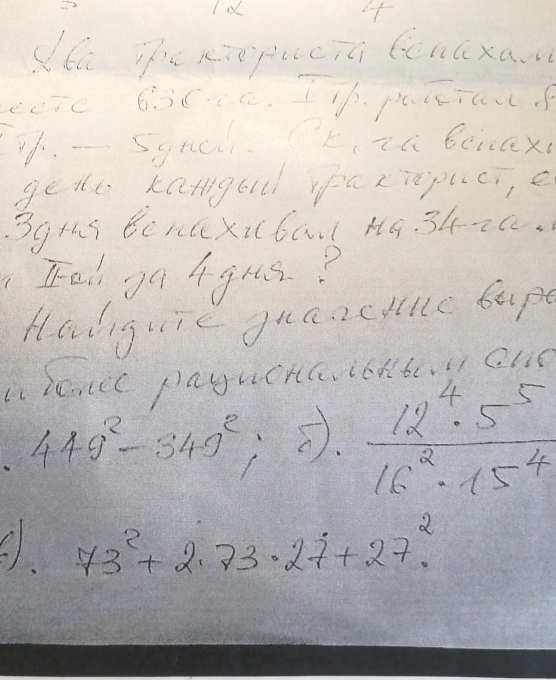 12 4
Два тракториста вспахали
месте 636 га. I тр. работал 8
тр. — 5 дней. Ск. га вспахи
день каждый тракторист, е
3 дня вспахивал на 34 га
II-ой за 4 дня?
Найдите значение выра
более рациональным спо
449² - 349²; б). 12⁴ · 5⁵ / 16² · 15⁴
в). 73² + 2·73·27 + 27².